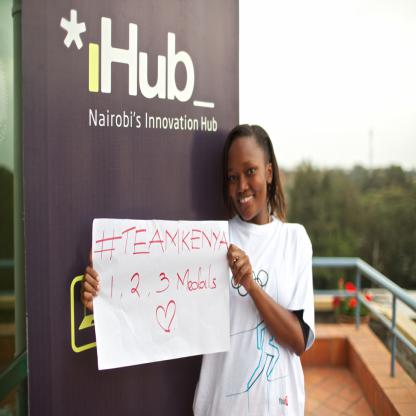 *iHub_
Nairobi's Innovation Hub
#TEAMKENYA
1, 2, 3 Medals